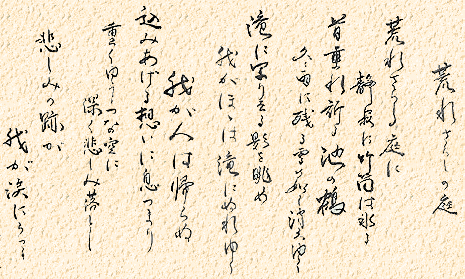 荒れさらしの庭
荒れさらる庭に
静寂に竹筒は氷る
首重れ祈る池の鶴
冬雨に残る雪の如く消えゆく
滝に宿りある影を眺め
我がほほは滝にぬれゆく
我が人は帰らぬ
込みあげる想いに息つまり
黄くゆうつな空に
深く悲しみ落とし
悲しみの跡が
我が涙にうつる